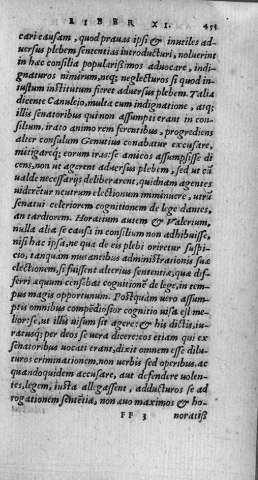 LIBER XI. 455
cari causam, quod prauas ipsi & inutiles ad-
uersus plebem sententias introducturi, noluerint
in hæc consilia popularissimos aduocare, indi-
gnaturos nimirum, neq; neglecturos si quod in-
iustum institutum fieret aduersus plebem. Talia
dicente Canuleio, multa cum indignatione, atq;
illis senatoribus qui non assumpti erant in con-
silium, irato animo rem ferentibus, progrediens
alter consulum Genutius conabatur excusare,
mitigareq; eorum iras: se amicos assumpsisse di
cens, non ut agerent aduersus plebem, sed ut cū
ualde necessarijs deliberarent, quidnam agentes
uidrētur neutrum electionum imminuere, utrū
senatui celeriorem cognitionem de lege dantes,
an tardiorem. Horatium autem & Valerium,
nulla aliā se causa in consilium non adhibuisse,
nisi hac ipsa, ne qua de eis plebi oriretur suspi-
cio, tanquam mutantibus administrationis suæ
electionem, si fuissent alterius sententiæ, quæ dif-
ferri æquum censebat cognitionē de lege, in tem-
pus magis opportunum. Postquàm uero assum-
ptis omnibus compēdiosior cognitio uisa est me-
lior: se, ut illis uisum sit agere: & his dictis, iu-
ratusq; per deos se uera dicere: eos etiam qui ex
senatoribus uocati erant, dixit omnem esse dilu-
turos criminationem, non uerbis sed operibus. ac
quandoquidem accusare, aut defendere uolen-
tes, legem, iusta allegassent, adducturos se ad
rogationem sentētia, non auo maximos & ho-
FF 3 noratiß